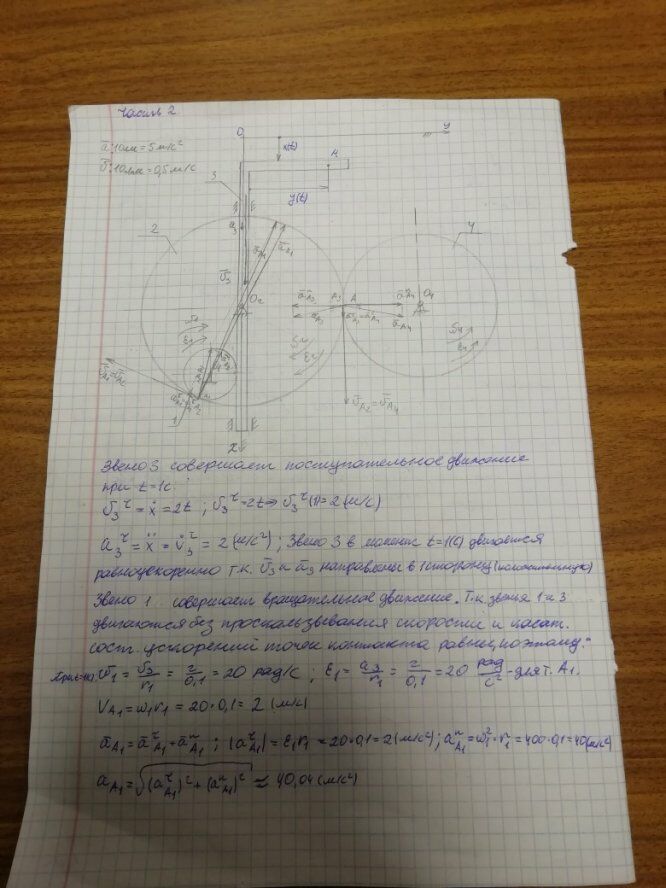 Часть 2
O
y
a: 10мм = 5 м/с²
x(t)
A
υ: 10мм = 0,5 м/с
3
y(t)
2
4
O₂
O₄
1
x
Звено 3 совершает поступательное движение
при t=1c.
υ₃^τ = ẋ = 2t ; υ₃^τ = 2t ⇒ υ₃^τ(1) = 2 (м/с)
a₃^τ = ẍ = υ̇₃^τ = 2 (м/с²); Звено 3 в момент t=1(c) двигается
равноускоренно т.к. υ₃ и a₃ направлены в 1 сторону
Звено 1 совершает вращательное движение. Т.к. звенья 1 и 3
двигаются без проскальзывания скорости и касат.
сост. ускорений точек контакта равны, поэтому:
ω₁ = υ₃/r₁ = 2/0,1 = 20 рад/с ; ε₁ = a₃/r₁ = 2/0,1 = 20 рад/с² - для т. A₁.
V_A₁ = ω₁r₁ = 20·0,1 = 2 (м/с)
a̅_A₁ = a̅^τ_A₁ + a̅ⁿ_A₁ ; |a^τ_A₁| = ε₁r₁ = 20·0,1 = 2 (м/с²) ; aⁿ_A₁ = ω₁²·r₁ = 400·0,1 = 40 (м/с²)
a_A₁ = √((a^τ_A₁)² + (aⁿ_A₁)²) ≈ 40,04 (м/с²)